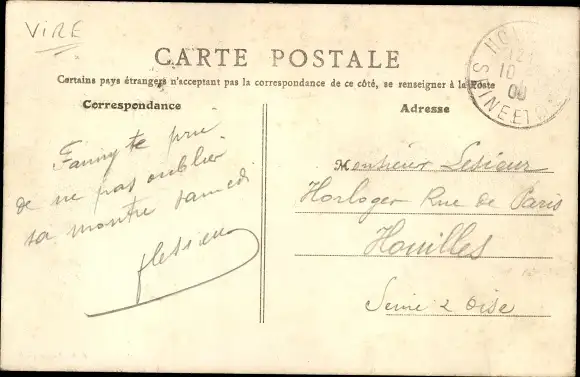 VIRE
CARTE POSTALE
Certains pays étrangers n'acceptant pas la correspondance de ce côté, se renseigner à la Poste
Correspondance
Fanny te prie
de ne pas oublier
sa montre samedi
Adresse
Monsieur Lesieur
Horloger Rue de Paris
Houilles
Seine & Oise
10
SEINE ET OISE